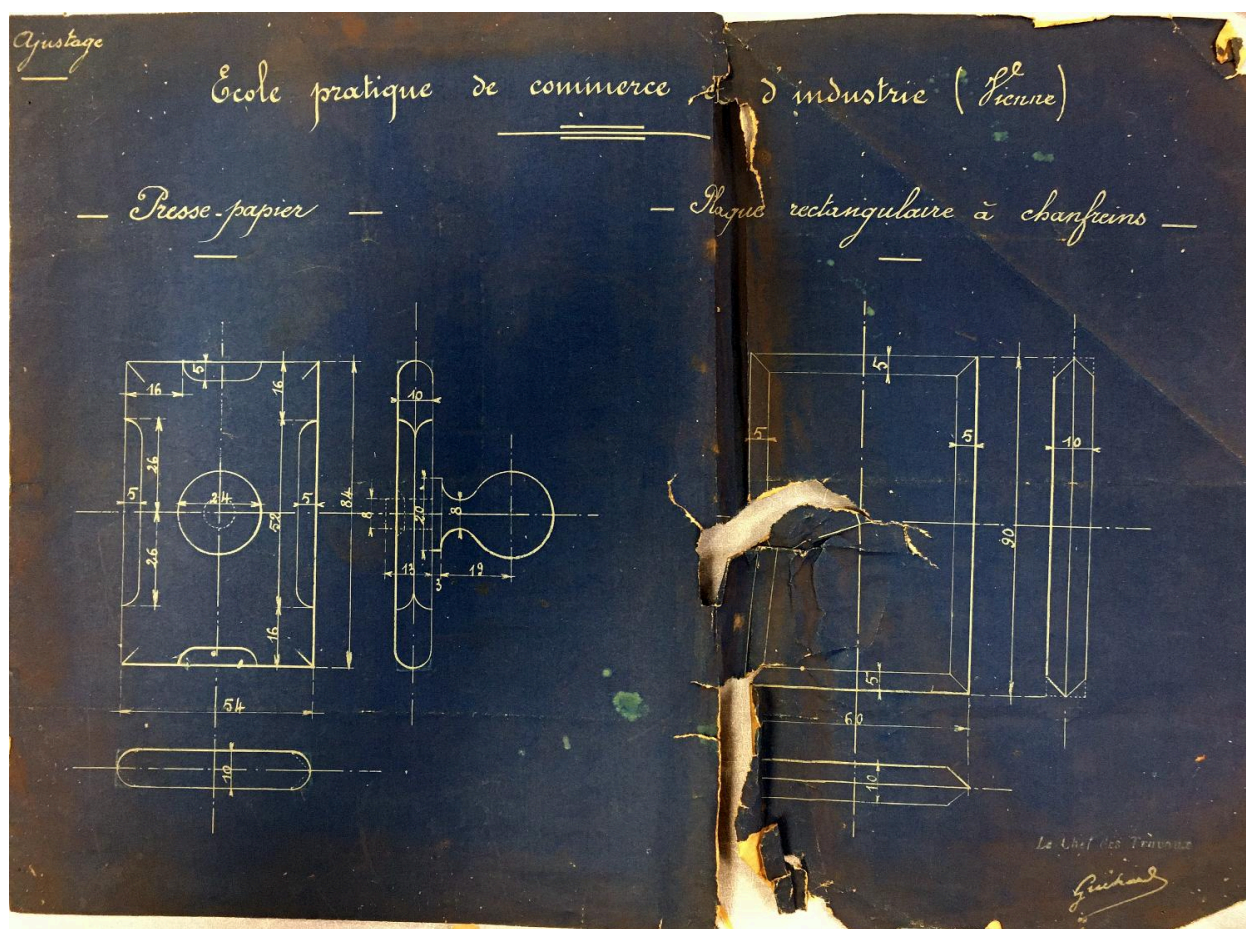 Ajustage
Ecole pratique de commerce et d'industrie (Vienne)
Presse-papier
Plaque rectangulaire à chanfreins
5
16
16
26
5
24
5
52
84
26
16
54
10
10
8
20
8
13
3
19
5
5
5
10
90
5
60
10
Le Chef des Travaux